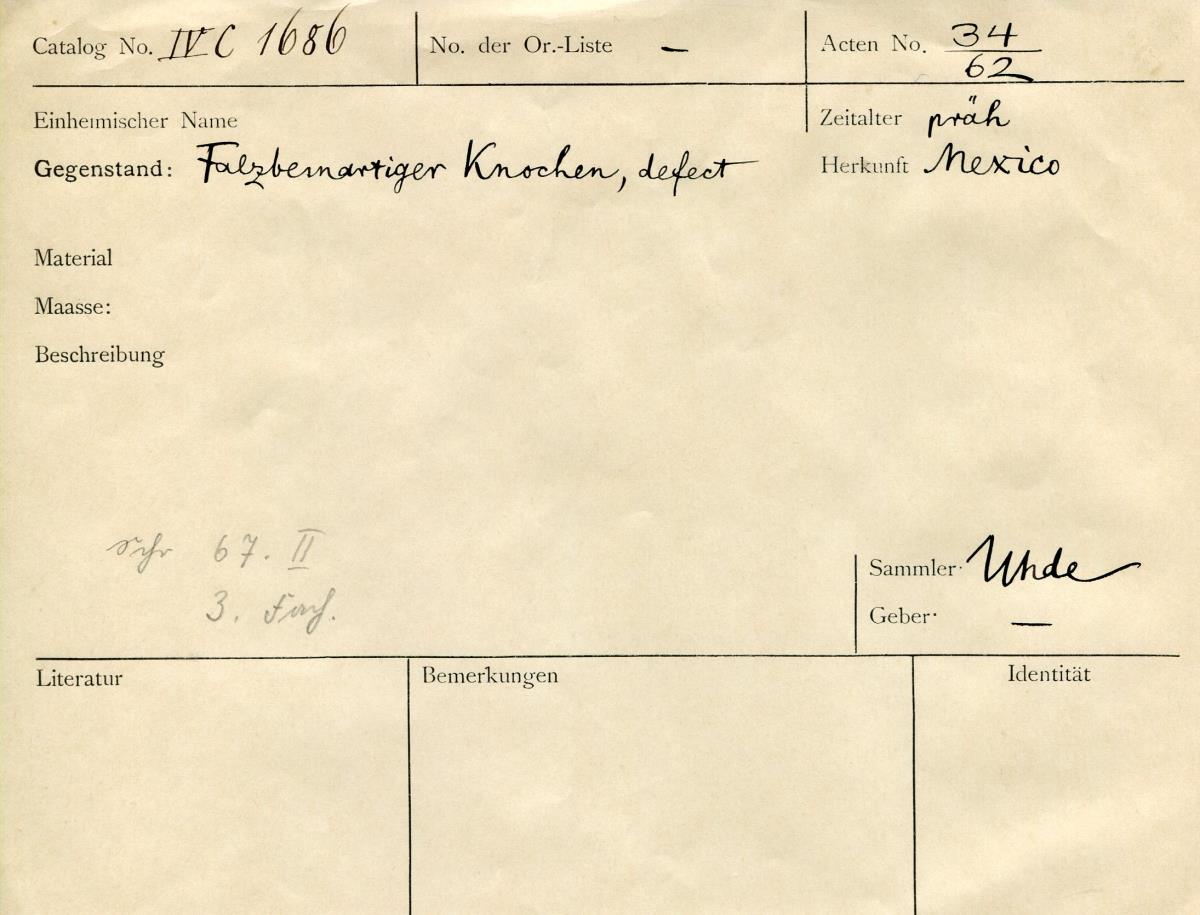 Catalog No. IV C 1686 No. der Or.-Liste — Acten No. 34/62
Einheimischer Name Zeitalter präh
Gegenstand: Falzbeinartiger Knochen, defect Herkunft Mexico
Material
Maasse:
Beschreibung
Schr 67. II
3. Fach.
Sammler Uhde
Geber —
Literatur Bemerkungen Identität